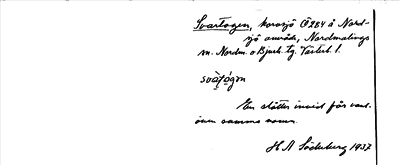 Svartogen, torrsjö Ö 284 å Nord-
sjö område, Nordmalings
sn. Nordm. o Bjurh. tg. Västerb. l.
svàṭógɘn
En slåtter invid får
även samma namn.
H N Söderberg 1937